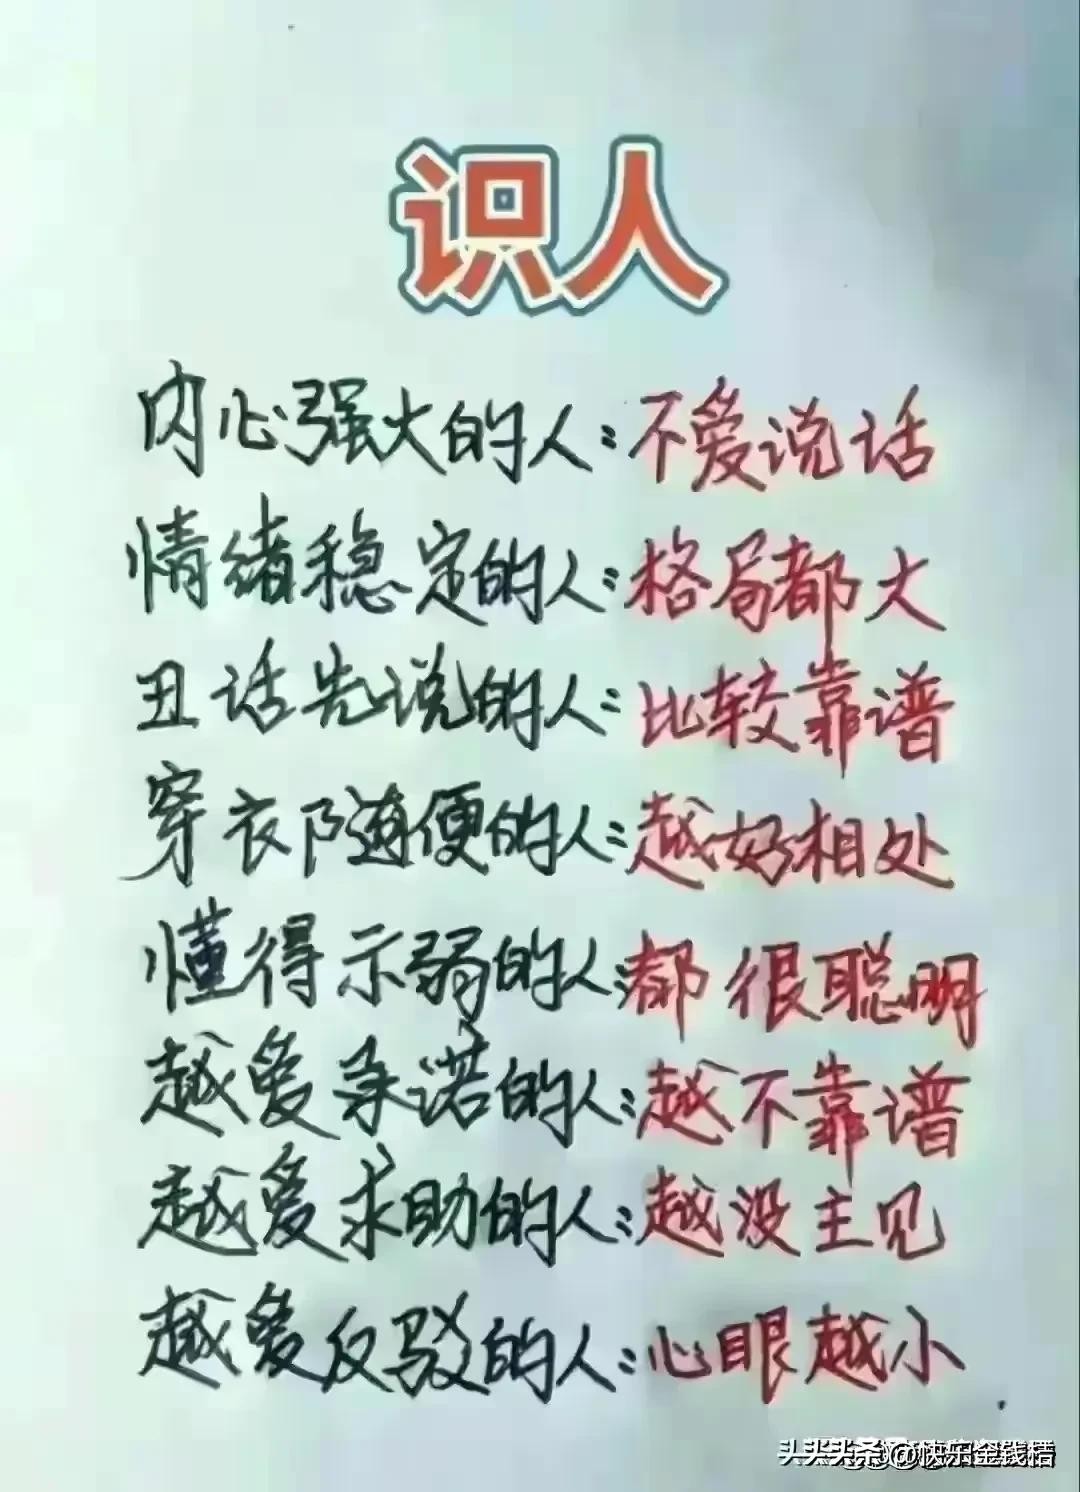 识人
内心强大的人:不爱说话
情绪稳定的人:格局都大
丑话先说的人:比较靠谱
穿衣随便的人:越好相处
懂得示弱的人:都很聪明
越爱承诺的人:越不靠谱
越爱求助的人:越没主见
越爱反驳的人:心眼越小
头条 @快乐金钱桔